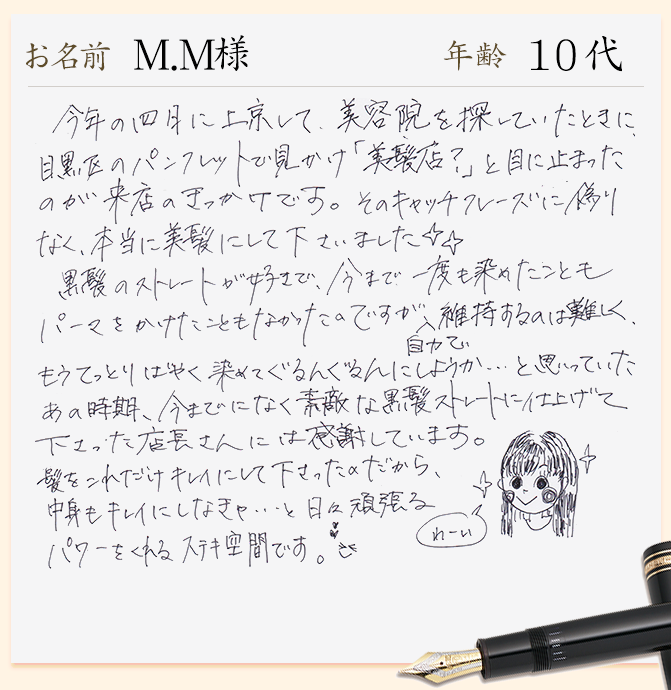 お名前 M.M様 年齢 10代
今年の四月に上京して、美容院を探していたときに、
目黒区のパンフレットで見かけ「美髪店?」と目に止まった
のが来店のきっかけです。そのキャッチフレーズに偽り
なく、本当に美髪にして下さいました☆☆
黒髪のストレートが好きで、今まで一度も染めたことも
パーマをかけたこともなかったのですが、維持するのは難しく、
自力で
もうてっとりばやく染めてぐるんぐるんにしようか…と思っていた
あの時期、今までになく素敵な黒髪ストレートに仕上げて
下さった店長さんには感謝しています。
髪をこれだけキレイにして下さったのだから、
中身もキレイにしなきゃ…と日々頑張る
パワーをくれるステキ空間です。
れーい